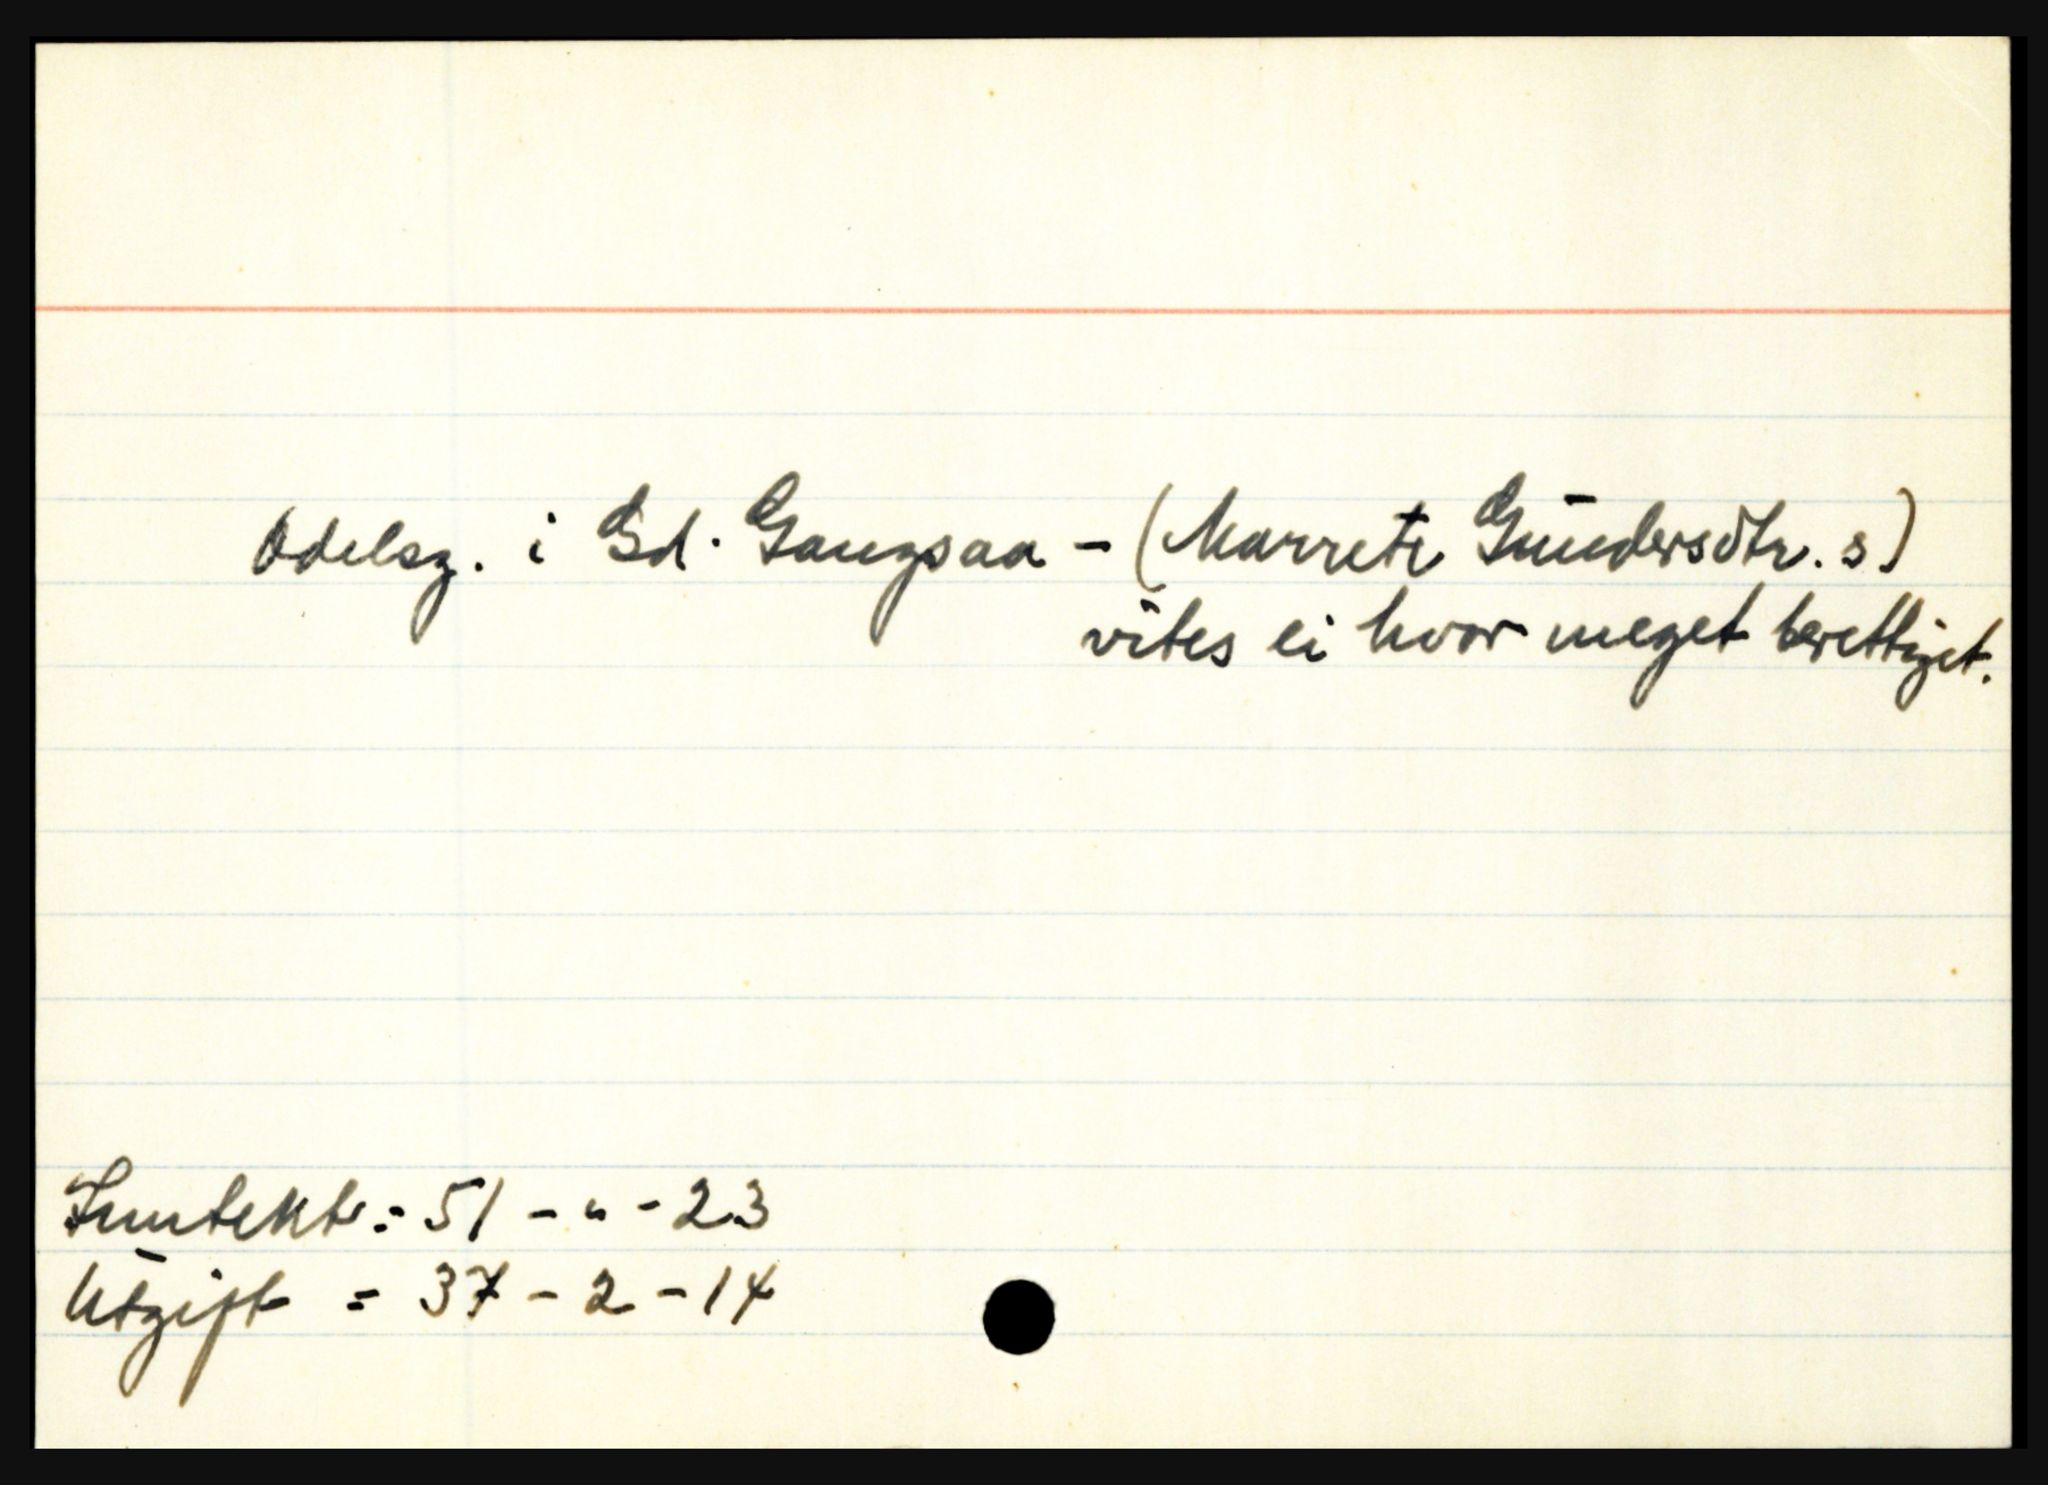 Odelsg. i Gd. Gangsaa - (Marrete Gundersdtr. s)
vites ei hvor meget berettiget.
Inntekt = 51 - " - 23
Utgift = 37 - 2 - 14